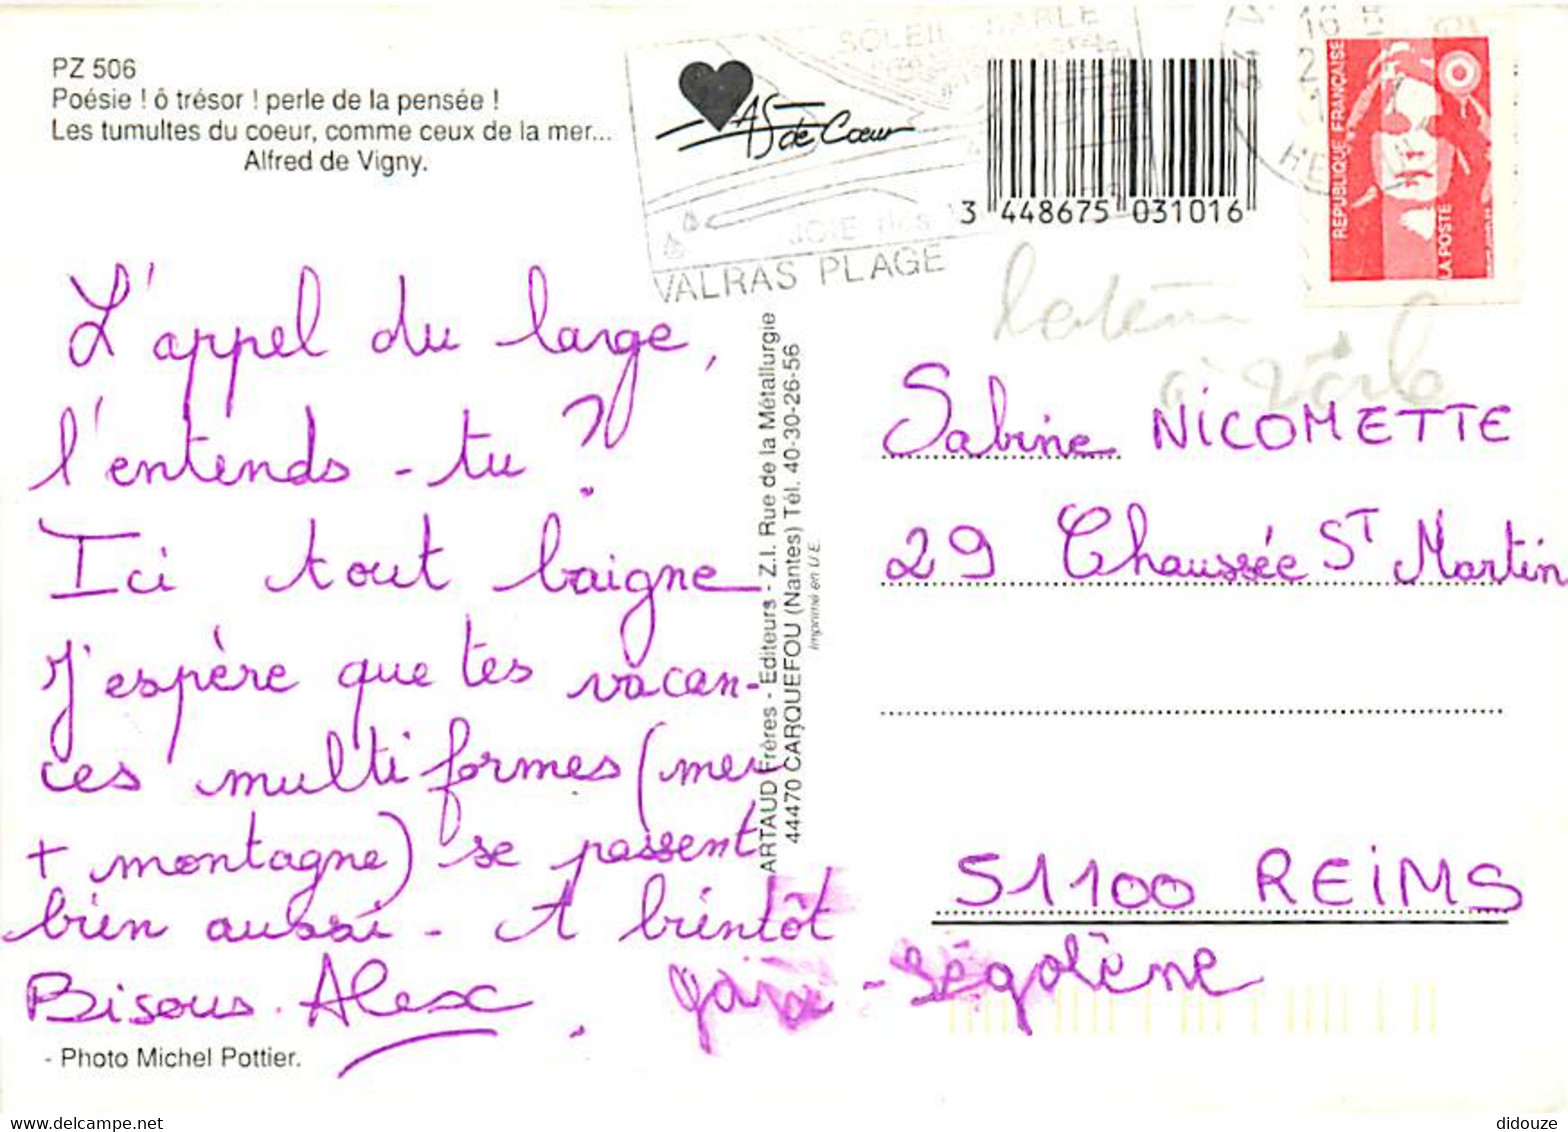 PZ 506
Poésie ! ô trésor ! perle de la pensée !
Les tumultes du coeur, comme ceux de la mer...
Alfred de Vigny.
SOLEIL SABLE
JOIE des
VALRAS PLAGE
AS de Cœur
3 448675 031016
16 H
RÉPUBLIQUE FRANÇAISE
LA POSTE
L'appel du large,
l'entends-tu ?
Ici tout baigne
J'espère que tes vacan-
ces multiformes (mer
+ montagne) se passent
bien aussi - A bientôt
Bisous. Alex.
- Ségolène
- Photo Michel Pottier.
ARTAUD Frères - Editeurs - Z.I. Rue de la Métallurgie
44470 CARQUEFOU (Nantes) Tél. 40-30-26-56
Imprimé en U.E.
Sabine NICOMETTE
29 Chaussée ST Martin
51100 REiMS
delcampe.net
didouze